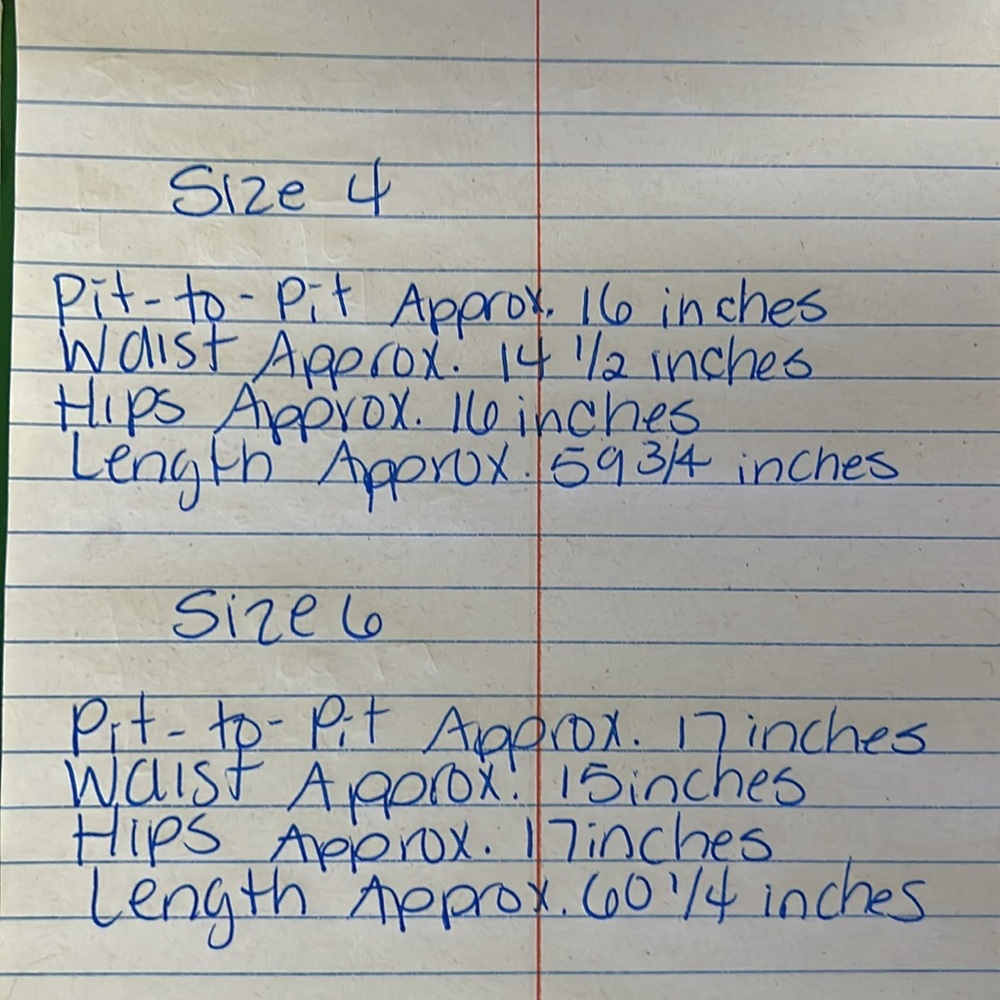 Size 4
Pit-to-Pit Approx. 16 inches
Waist Approx. 14 1/2 inches
Hips Approx. 16 inches
Length Approx. 59 3/4 inches
Size 6
Pit-to-Pit Approx. 17 inches
Waist Approx. 15 inches
Hips Approx. 17 inches
Length Approx. 60 1/4 inches